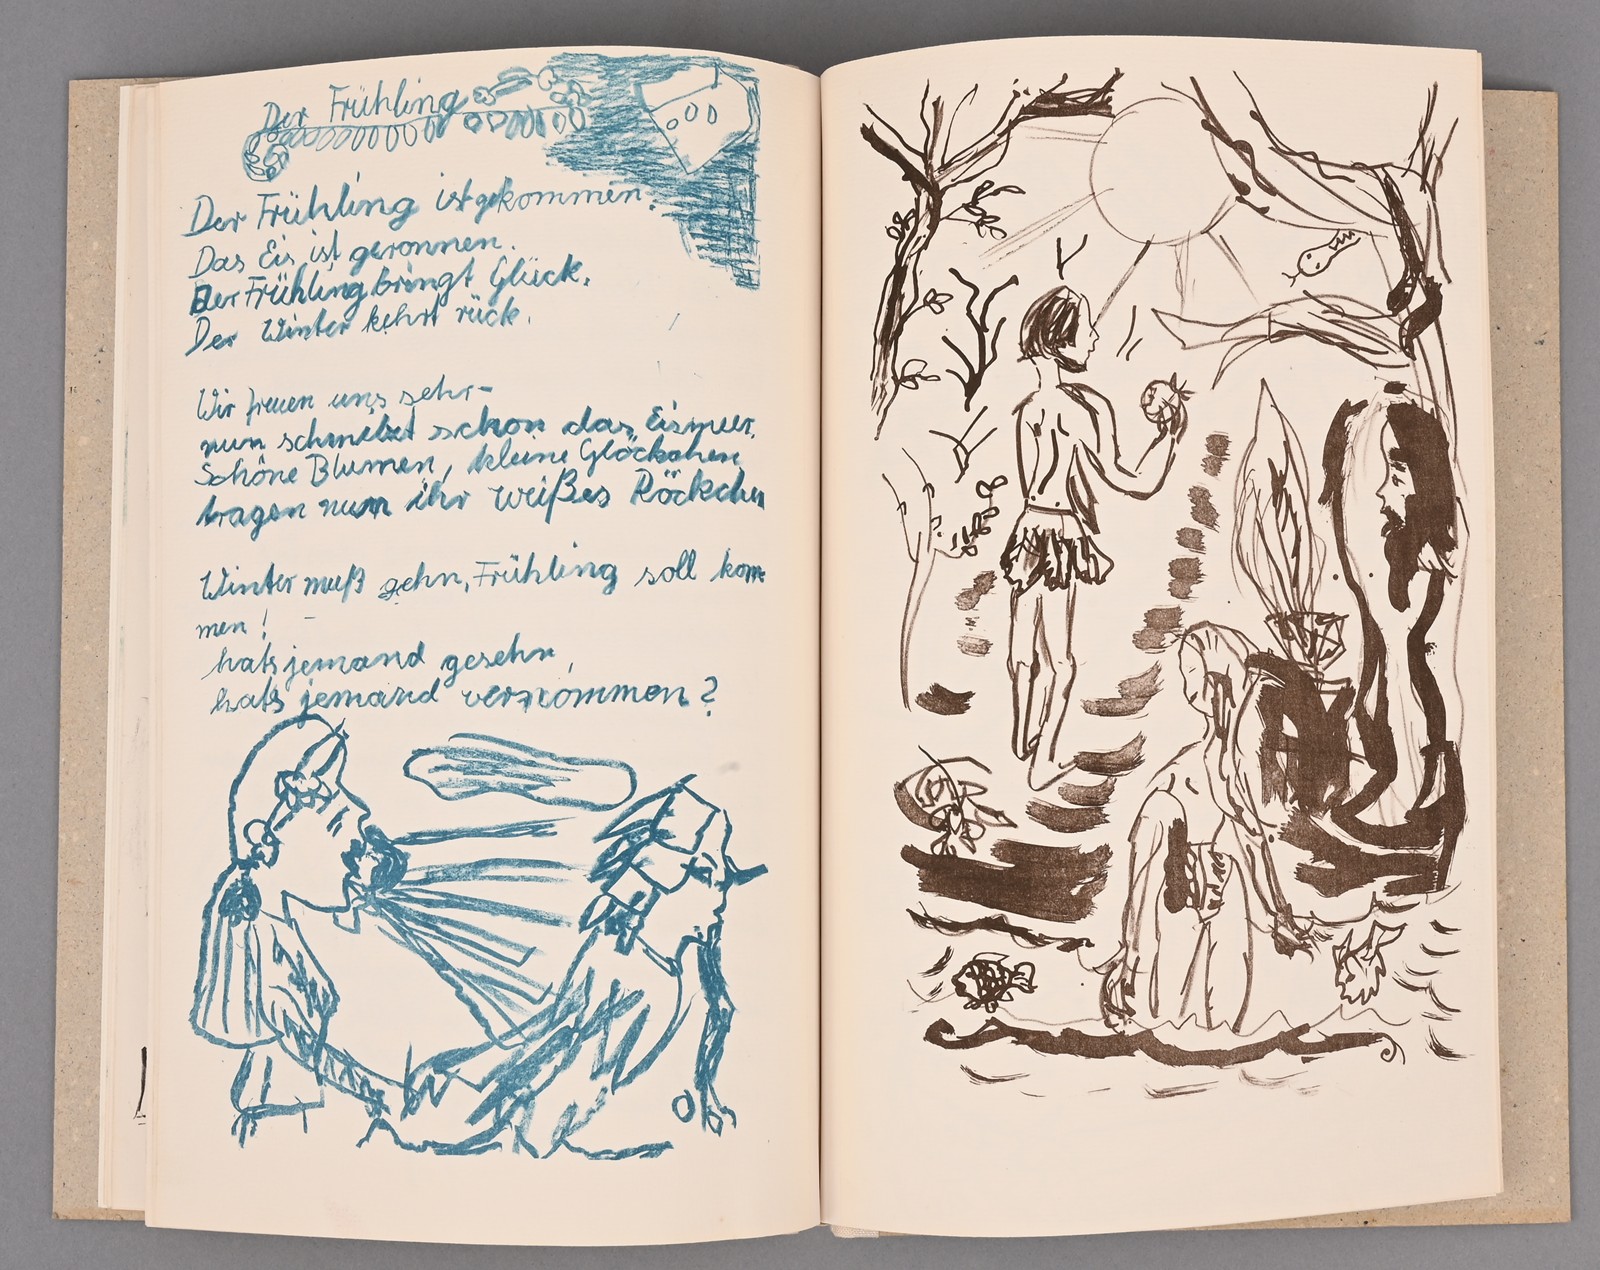 Der Frühling
Der Frühling ist gekommen.
Das Eis ist geronnen.
Der Frühling bringt Glück.
Der Winter kehrt rück.
Wir freuen uns sehr-
nun schmelzt schon das Eismeer.
Schöne Blumen, kleine Glöckchen
tragen nun ihr weißes Röckchen
Winter muß gehn, Frühling soll kom-
men!
hats jemand gesehn,
hats jemand vernommen?